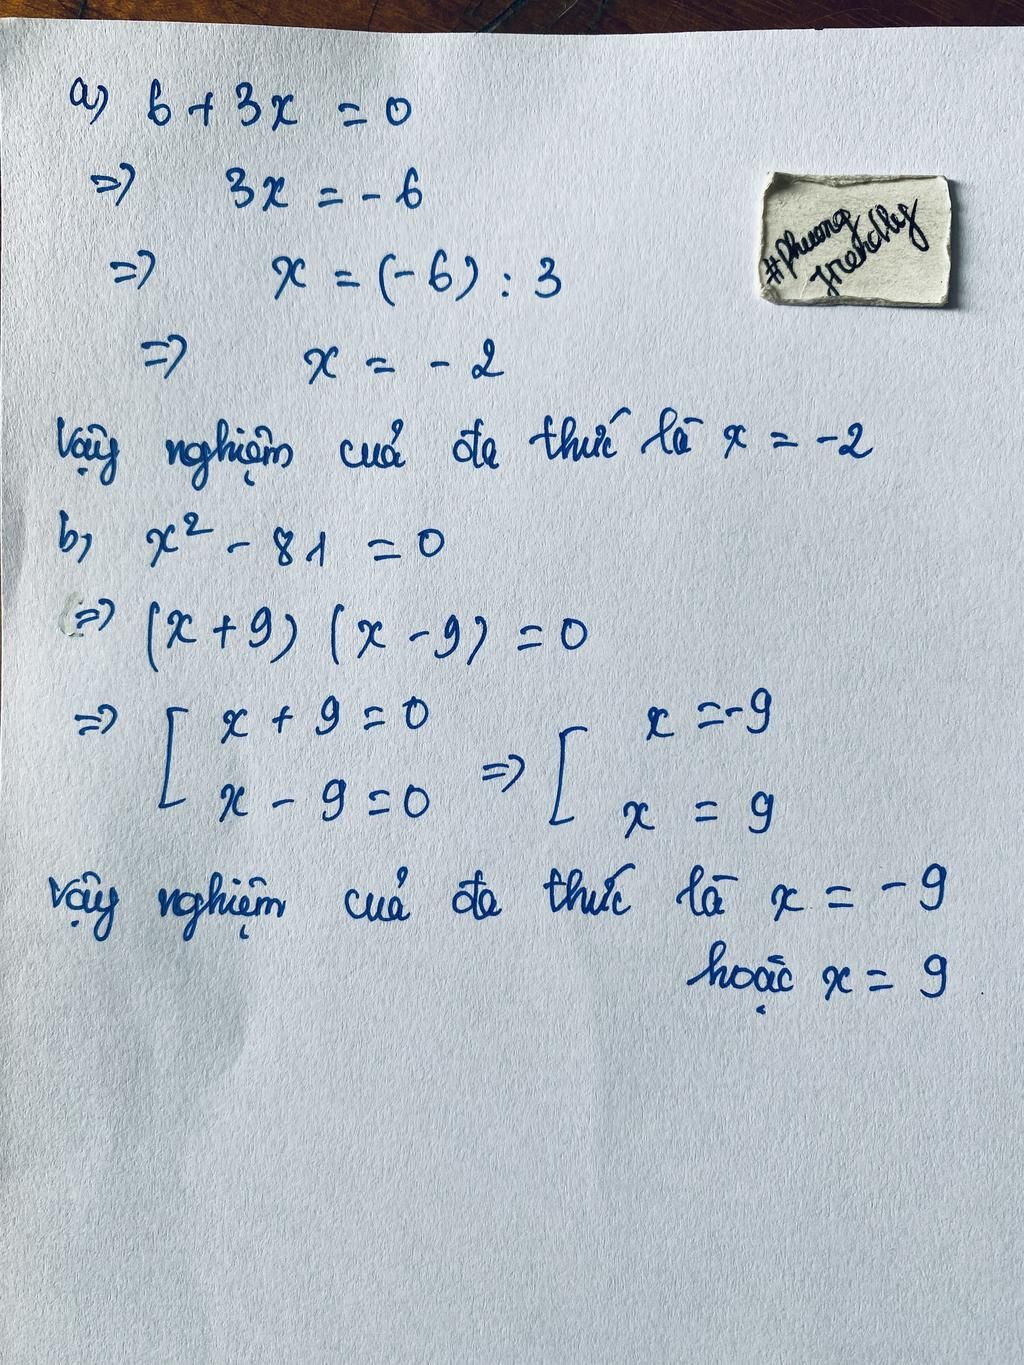 a) 6 + 3x = 0
=> 3x = - 6
=> x = (-6) : 3
=> x = - 2
Vậy nghiệm của đa thức là x = -2
b, x² - 81 = 0
=> (x + 9) (x - 9) = 0
=> [ x + 9 = 0 => [ x = -9
x - 9 = 0 x = 9
Vậy nghiệm của đa thức là x = - 9
hoặc x = 9
#phuong
friendly